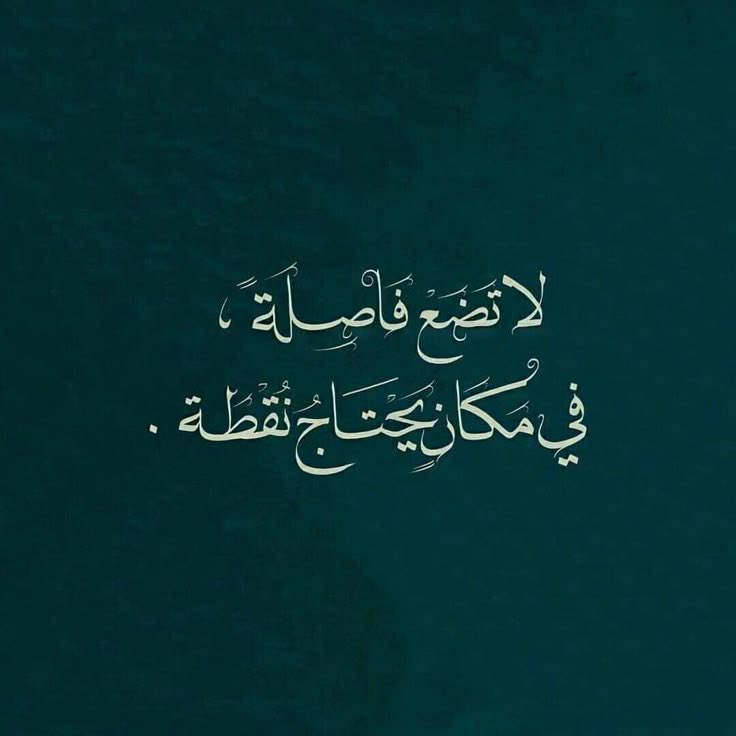 لا تَضَعْ فَاصلَةً ،
في مَكَانٍ يَحْتَاجُ نُقْطَة .